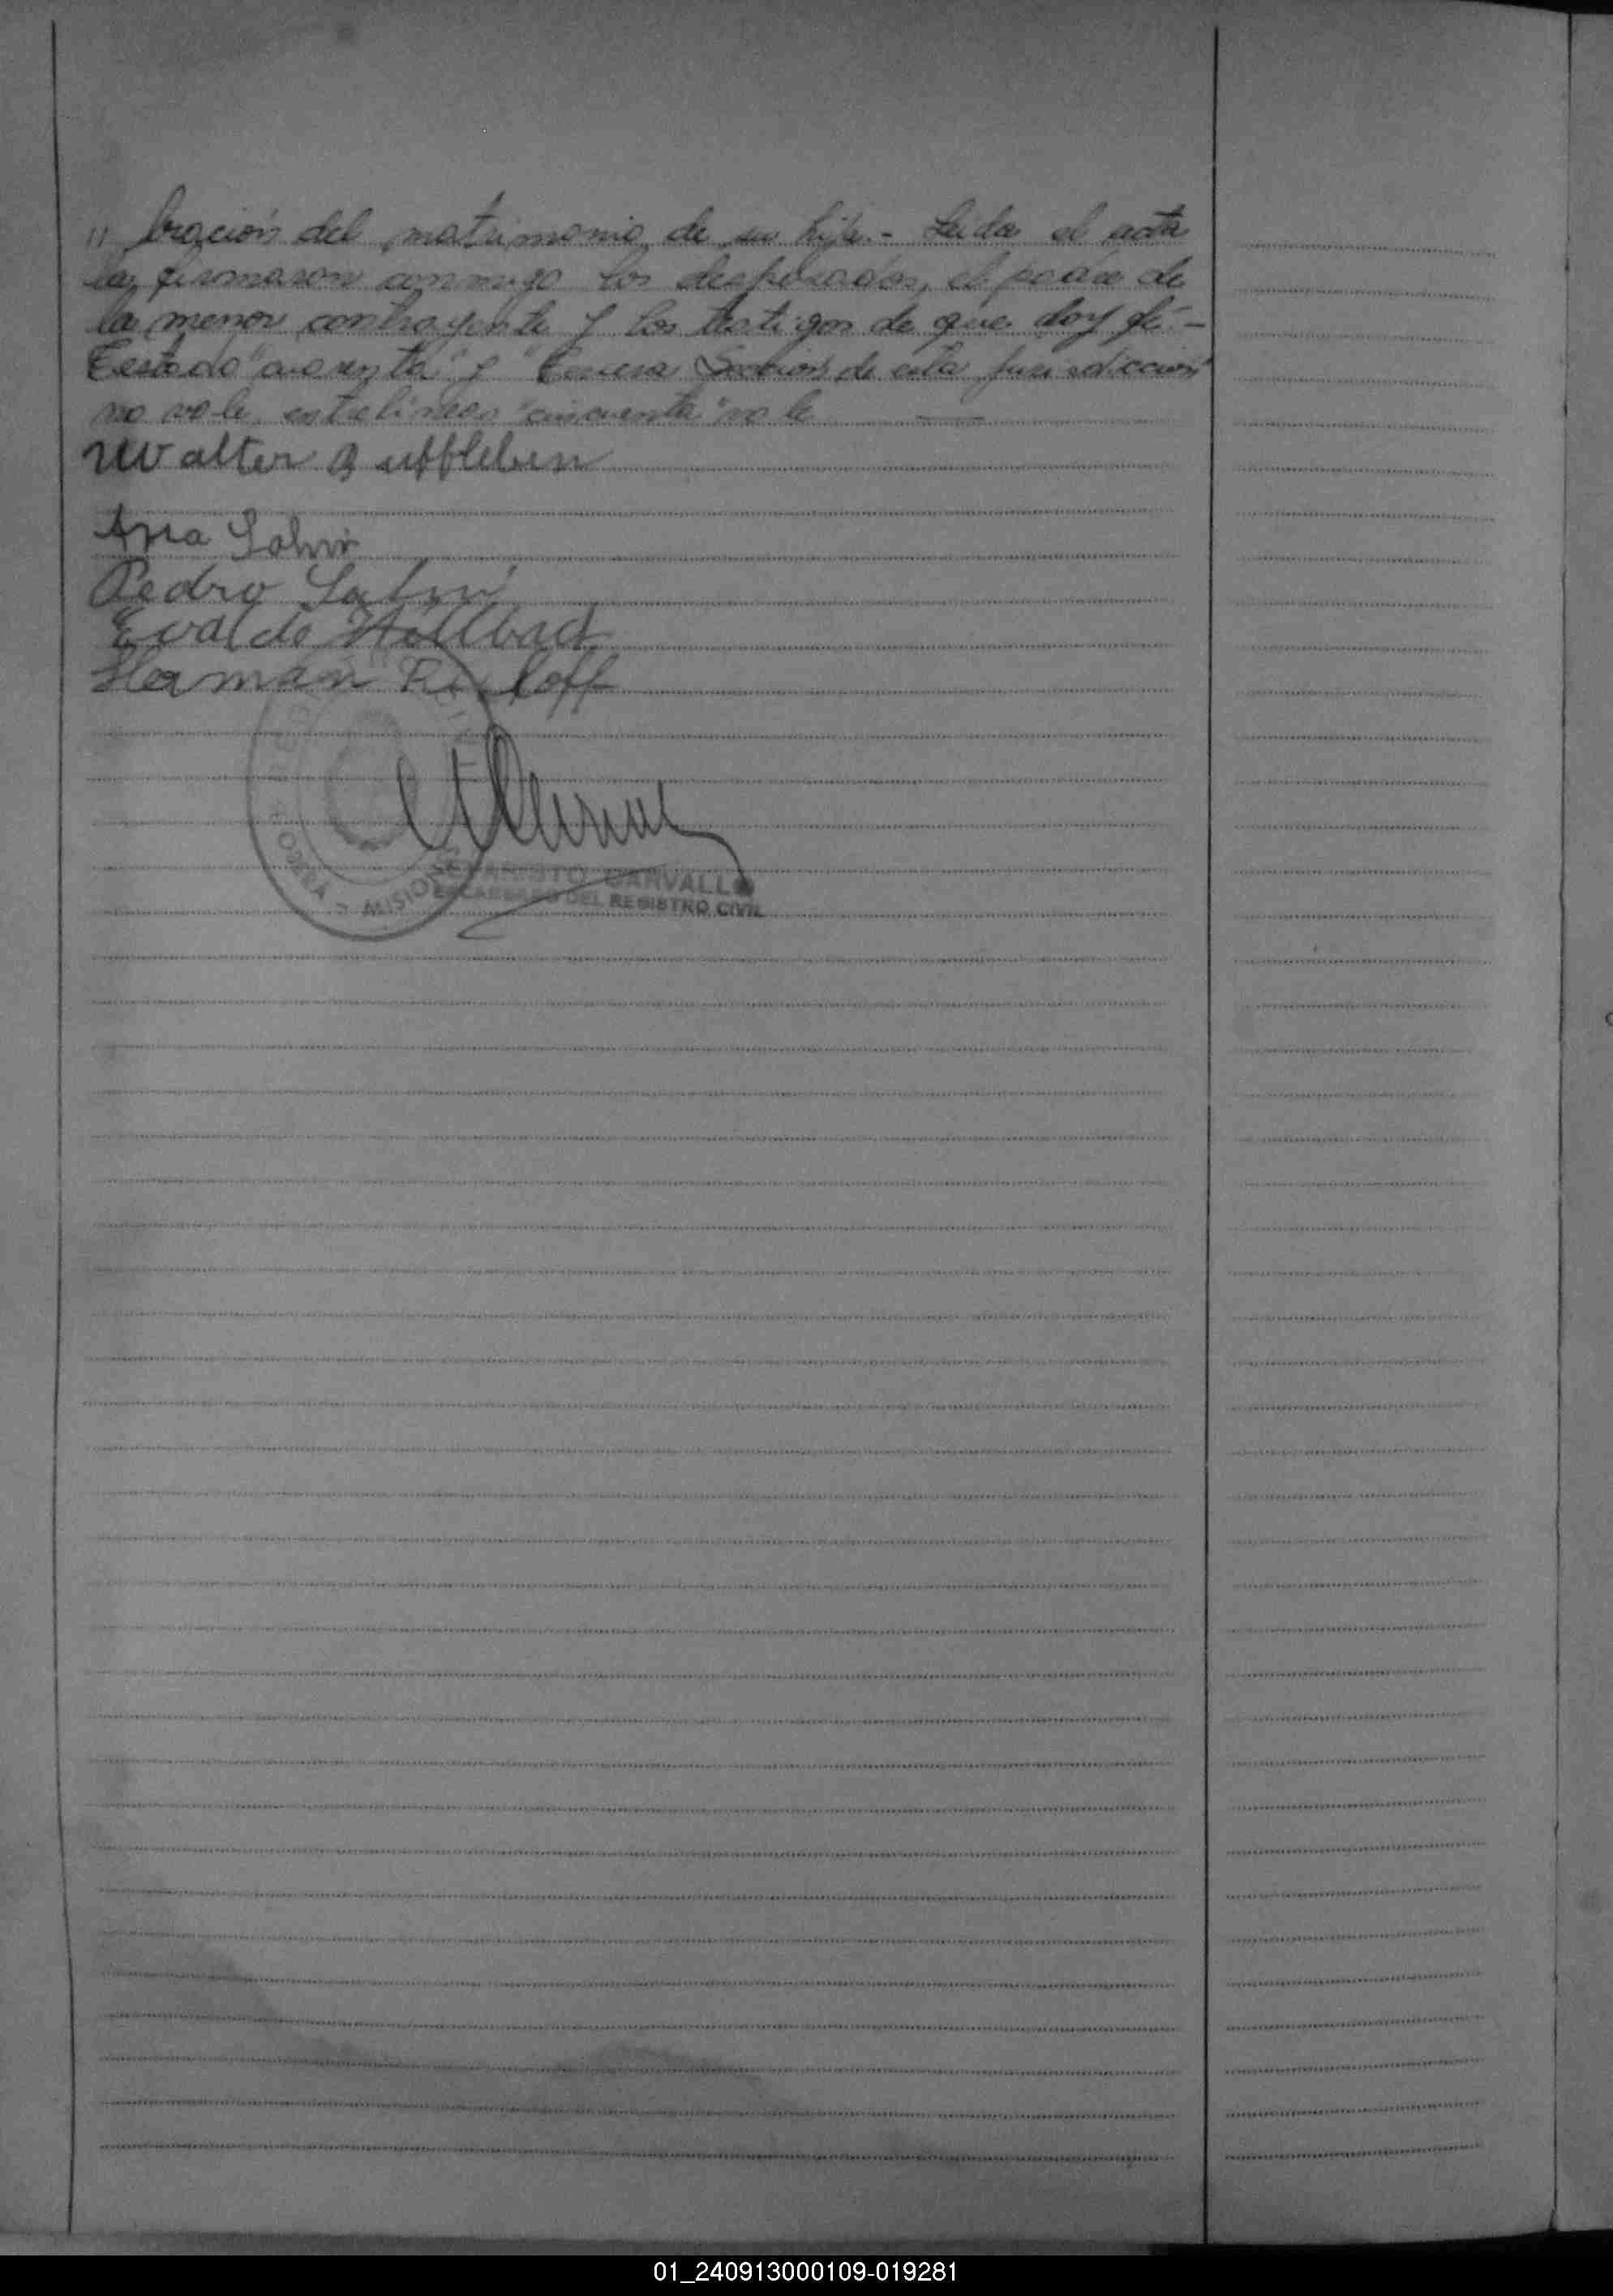 " bración del matrimonio de su hija.- Leída el acta
la firmaron conmigo los desposados, el padre de
la menor contrayente y los testigos de que doy fé.-
Testado "cuarenta" y "Tercera Sección de esta jurisdicción"
no vale, entrelíneas "cincuenta" vale
Walter Guffleben
Ana Salvi
Pedro Salvi
Evaldo Hollbach
Herman
OBERA - MISIONES
EVARISTO CARVALLO
ENCARGADO DEL REGISTRO CIVIL
01_240913000109-019281